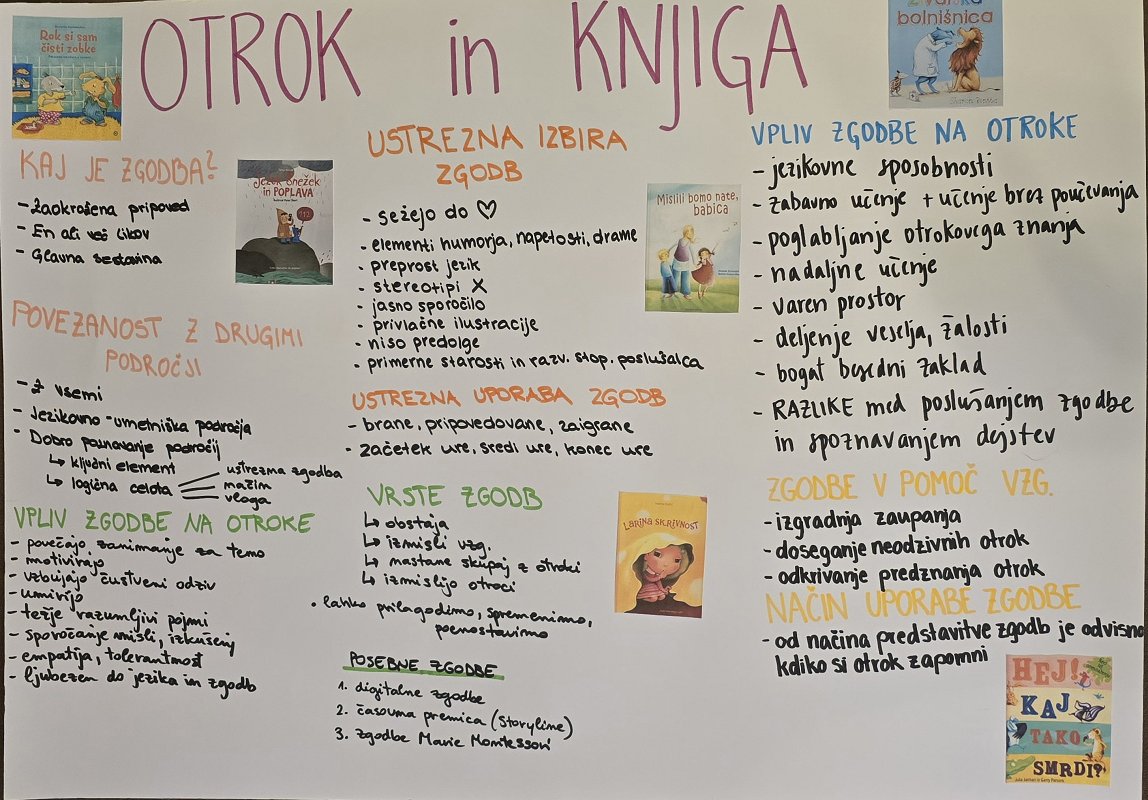 OTROK in KNJIGA
Rok si sam
čisti zobke
KAJ JE ZGODBA?
- Zaokrožena pripoved
- En ali več likov
- Glavna sestavina
JEŽEK SNEŽEK
in POPLAVA
112
POVEZANOST Z DRUGIMI
PODROČJI
- Z vsemi
- Jezikovno-umetniška področja
- Dobro poznavanje področij
↳ ključni element
↳ logična celota
ustrezna zgodba
način
vloga
VPLIV ZGODBE NA OTROKE
- povečajo zanimanje za temo
- motivirajo
- vzbujajo čustveni odziv
- umirijo
- težje razumljivi pojmi
- sporočanje misli, izkušenj
- empatija, tolerantnost
- ljubezen do jezika in zgodb
USTREZNA IZBIRA
ZGODB
- sežejo do ♡
- elementi humorja, napetosti, drame
- preprost jezik
- stereotipi X
- jasno sporočilo
- privlačne ilustracije
- niso predolge
- primerne starosti in razv. stop. poslušalca
Mislili bomo nate,
babica
USTREZNA UPORABA ZGODB
- brane, pripovedovane, zaigrane
- začetek ure, sredi ure, konec ure
VRSTE ZGODB
↳ obstaja
↳ izmisli vzg.
↳ nastane skupaj z otroki
↳ izmislijo otroci
• lahko prilagodimo, spremenimo,
poenostavimo
LARINA SKRIVNOST
POSEBNE ZGODBE
1. digitalne zgodbe
2. časovna premica (Storyline)
3. zgodbe Marie Montessori
Živalska
bolnišnica
Sharon Rentta
VPLIV ZGODBE NA OTROKE
- jezikovne sposobnosti
- zabavno učenje + učenje brez poučevanja
- poglabljanje otrokovega znanja
- nadaljne učenje
- varen prostor
- deljenje veselja, žalosti
- bogat besedni zaklad
- RAZLIKE med poslušanjem zgodbe
in spoznavanjem dejstev
ZGODBE V POMOČ VZG.
- izgradnja zaupanja
- doseganje neodzivnih otrok
- odkrivanje predznanja otrok
NAČIN UPORABE ZGODBE
- od načina predstavitve zgodb je odvisno
kdiko si otrok zapomni
HEJ!
KAJ
TAKO
SMRDI?